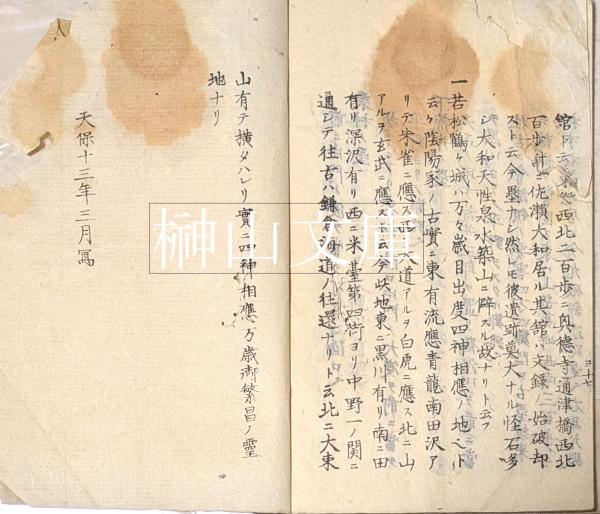 舘ト云東𪜈西北二百歩ニ真徳寺通津橋西北
百歩計ニ佐瀬大和居ル其舘ハ文録ノ始破却
スト云今塁ナシ然レモ彼遺跡莫大ナル怪石多
シ大和天性泉水築山ニ癖スル故ナリト云フ
一若松鶴ヶ城ハ万々歳目出度四神相應ノ地ト
云々陰陽家ノ古實ニ東有流應青龍南田沢ア
リテ朱雀ニ應ス西大道アルヲ白虎ニ應ス北ニ山
アルヲ玄武ニ應スト云今此地東ニ黒川有リ南ニ田
有リ深沢有リ西ニ米臺第四街ヨリ中野一ノ関ニ
通シテ往古ハ鎌倉海道ノ往還ナリト云北ニ大東
ヨ十七
山有テ横タハレリ實ニ四神相應万歳御繁昌ノ霊
地ナリ
天保十三年三月寫
榊山文庫